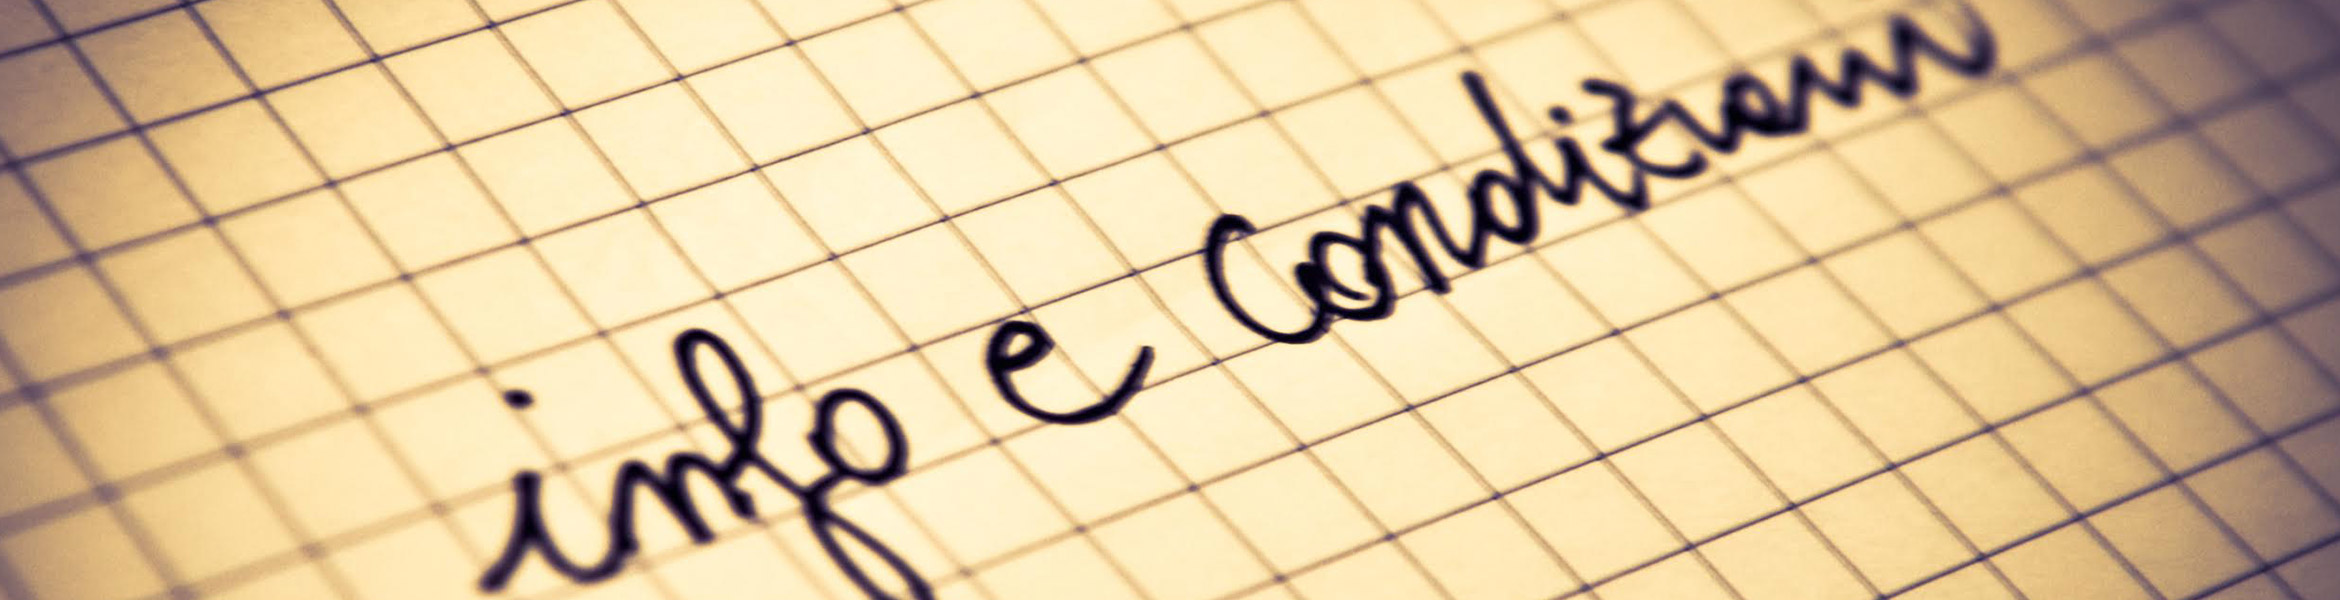 info e condizioni